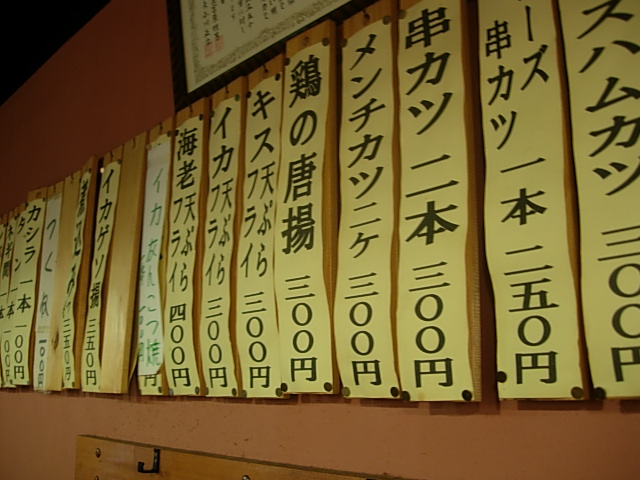 スハムカツ 三〇〇円
ーズ
串カツ 一本 二五〇円
串カツ 二本 三〇〇円
メンチカツ二ヶ 三〇〇円
鶏の唐揚 三〇〇円
キス天ぷら
フライ 三〇〇円
イカ天ぷら
フライ 三〇〇円
海老天ぷら
フライ 四〇〇円
イカ
イカゲソ揚 三五〇円
煮込み 三五〇円
つくね 一〇〇円
カシラ 一本 一〇〇円
タン